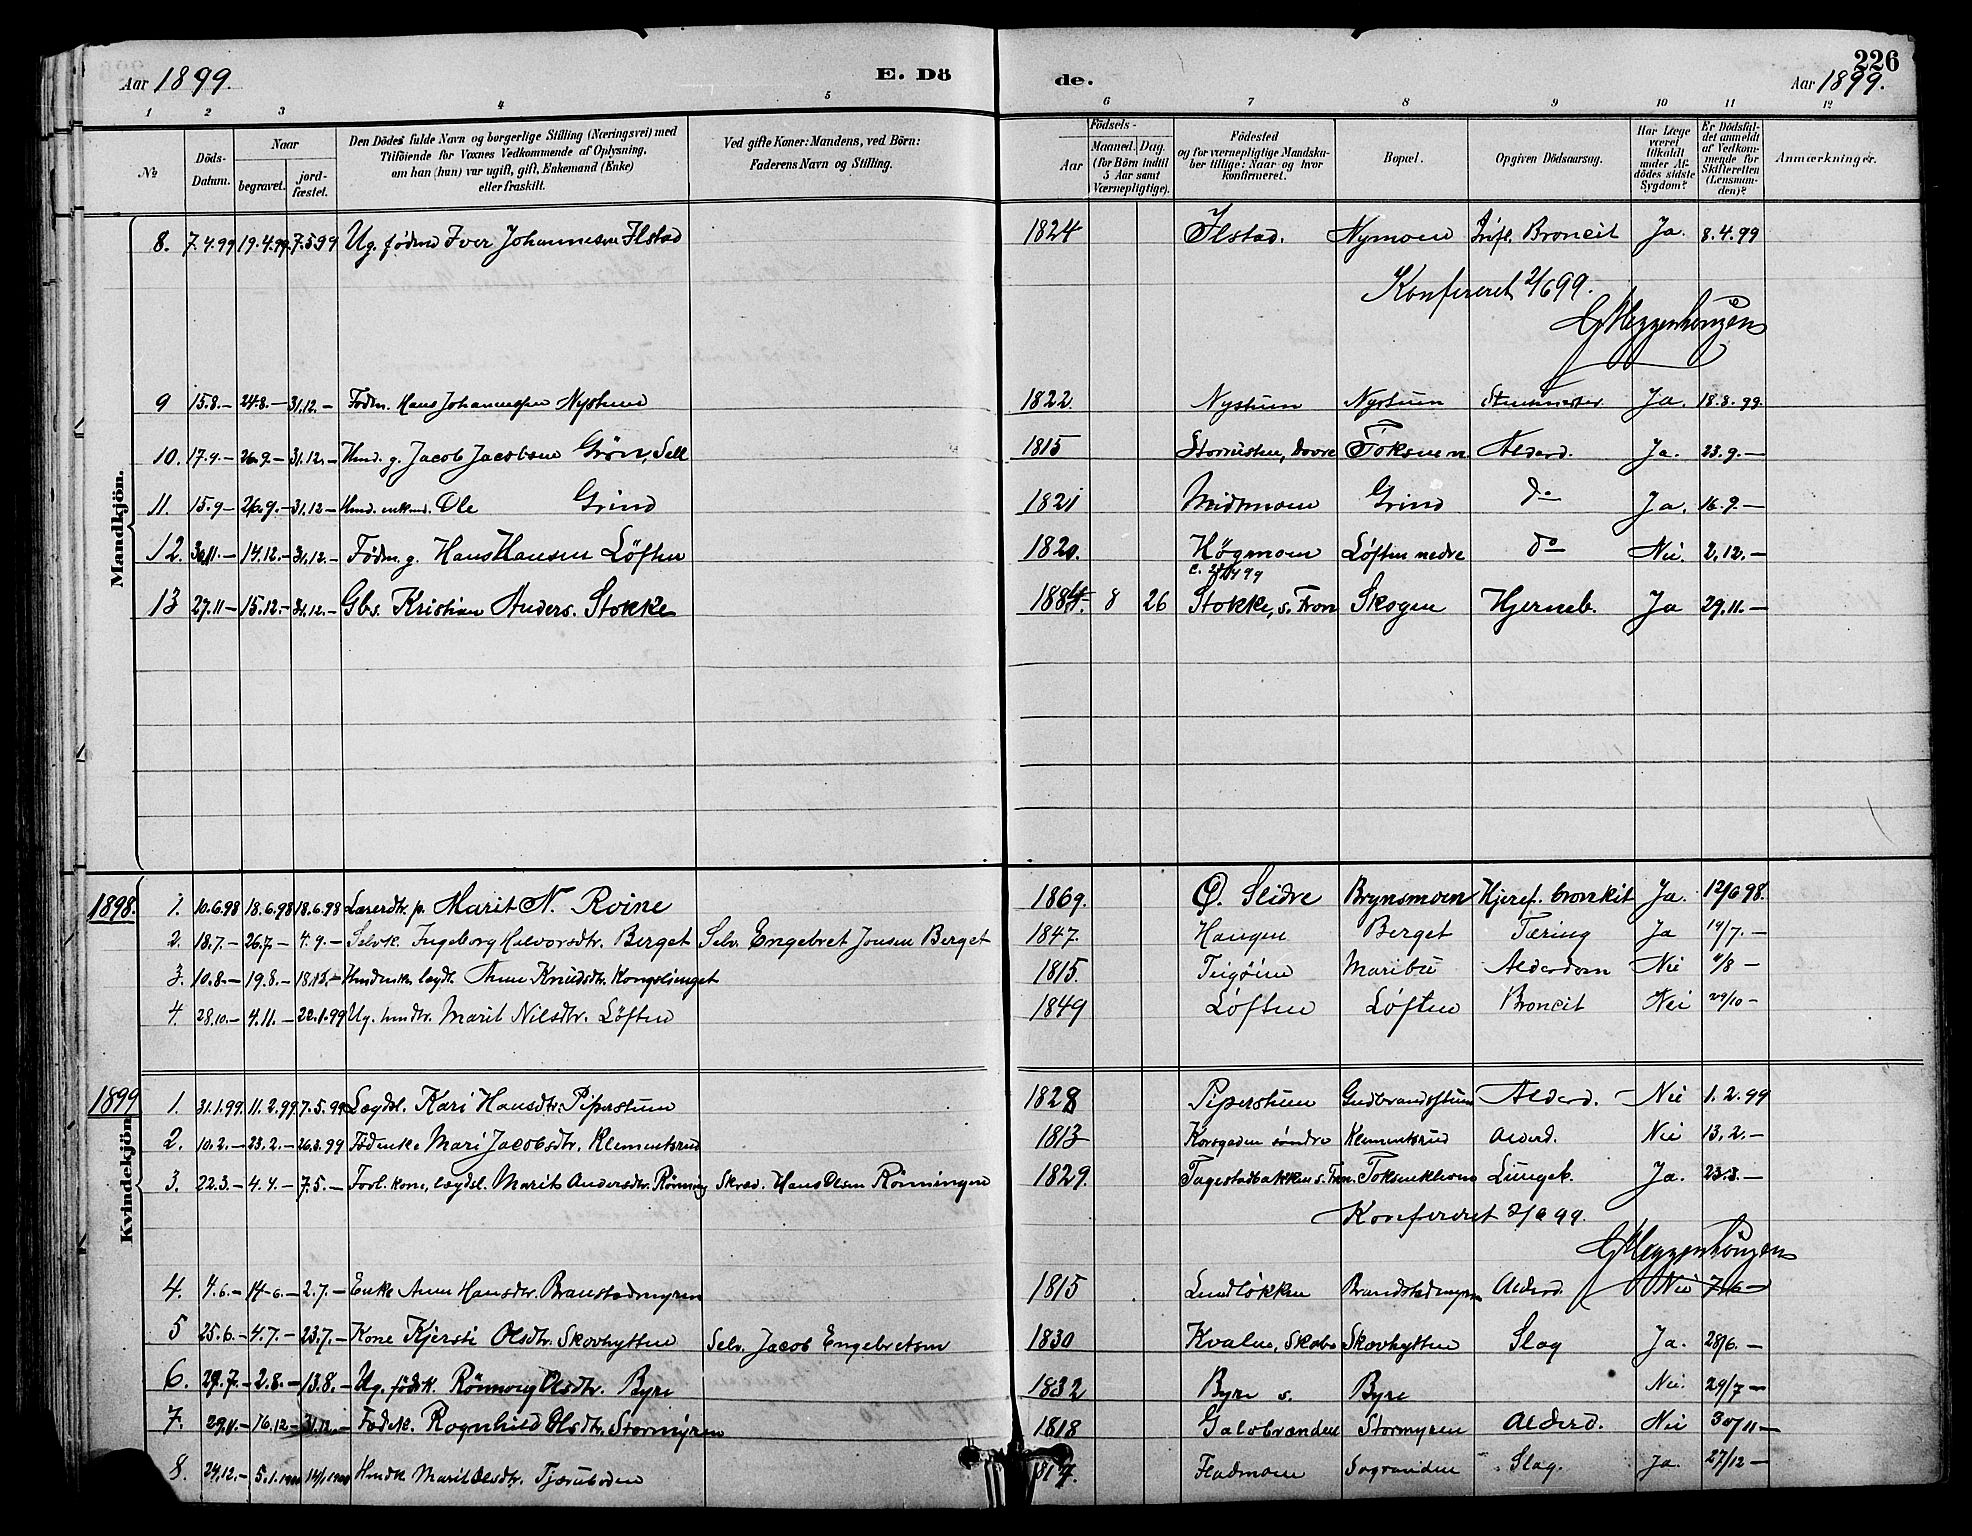 226
Aar 1899. E. Dö de. Aar 1899.
1 2 3 4 5 6 7 8 9 10 11 12
№ Döds-Datum. Naar begravet. jord-fæstet. Den Dödes fulde Navn og borgerlige Stilling (Næringsvei) med Tilföiende for Voxnes Vedkommende af Oplysning, om han (hun) var ugift, gift, Enkemand (Enke) eller fraskilt. Ved gifte Koner: Mandens, ved Börn: Faderens Navn og Stilling. Födsels- Aar Maaned. Dag. (for Börn indtil 5 Aar samt Værnepligtige). Födested og for værnepligtige Mandskaber tillige: Naar og hvor konfirmeret. Bopæl. Opgiven Dödsaarsag. Har Læge været tilkaldt under Afdödes sidste Sygdom? Er Dödsfaldet anmeldt af Vedkommende for Skifteretten (Lensmanden)? Anmærkninger.
Mandkjön.
8. 7.4.99 19.4.99 7.5.99 Ug. födmd Iver Johannesen Ilstad 1824 Ilstad. Nymoen Infl. Broncit Ja. 8.4.99
Konfereret 2/6 99.
9 15.8.— 24.8.— 31.12.— Fodm. Hans Johannessen Nystuen 1822. Nystuen Nystuen Ja. 18.8.99.
10. 17.9— 26.9.— 31.12.— Hmd. g. Jacob Jacobsen Grön, Sell 1815 Storusten, Dovre Toksuen Alderd. Ja. 23.9.—
11. 15.9— 26.9.— 31.12— Hmd. enkmd. Ole Grind 1821 Midtmoen Grind do Ja. 16.9.—
12. 30.11.— 14.12.— 31.12.— Födm. g. Hans Hansen Löften 1820. Høgmoen Löften nedre do Nei 2.12.—
13 27.11— 15.12.— 31.12.— Gbs. Kristian Anders. Stokke 1884. 8 26 Stokke, s. Fron Skogen Hjerneb. Ja 29.11.—
1898. 1. 10.6.98 18.6.98 18.6.98 Lærerdtr. p. Marit N. Roine 1869. Ø. Slidre Brynsmoen Hjeref. bronkit Ja. 12/6 98.
2. 18.7.— 26.7.— 4.9.— Selvk. Ingeborg Halvorsdtr. Berget Selv. Engebret Jonsen Berget 1847. Haugen Berget Tæring Ja 19/7.—
3. 10.8.— 19.8.— 18.12.— Hmdenk. lægdl. Anne Knudsdtr. Kongsljenget 1815. Teigöien Maribu Alderdom Nei 11/8—
4. 28.10.— 4.11.— 22.1.99 Ug. hmdtr. Marit Nilsdtr. Löften 1849 Löften Löften Broncit Nei 29/10—
1899 Kvindekjön.
1. 31.1.99. 11.2.99. 7.5.99 Lægdsl. Kari Hansdtr. Piperstuen 1828 Piperstuen Gudbrandsstuen Alderd. Nei 1.2.99
2. 10.2.— 23.2.— 26.3.99 Födenke Mari Jacobsdtr. Klementsrud 1813 Korsgaden söndre Klementsrud Alderd. Nei 13.2.—
3. 22.3.— 4.4.— 7.5.— Forl. kone, lægdsl. Marit Andersdtr. Rönning Skræd. Hans Olsen Rönningen 1829. Tagestadbakken s. Fron. Lungeb. Ja. 23.3.—
Konfereret 2/6 99.
4. 4.6.— 14.6.— 2.7.— Enke Anne Hansdtr. Branstadmyren 1815 Lundløkken Brandstadmyren Alderd. Nei 7/6—
5 25.6.— 4.7.— 23.7.— Kone Kjersti Olsdtr. Skovhytten Selv. Jacob Engebretsen 1830 Kvalen, Skabo Skovhytten Slag Ja. 28/6.—
6. 27.7.— 2.8.— 13.8.— Ug. födek. Rönnoug Olsdtr. Byre 1832 Byre s. Byre Nei. 29/7—
7. 29.11.— 16.12— 31.12.— Fodek. Rognhild Olsdtr. Stormyren 1818 Galobranden Stormyren Alderd. Nei 30/11—
8. 24.12.— 5.1.1900 14/1 1900 Hmdk Marit Olsdtr. Tjærnboden 1817. Fladmoen Sogranden Slag. Ja. 27/12—